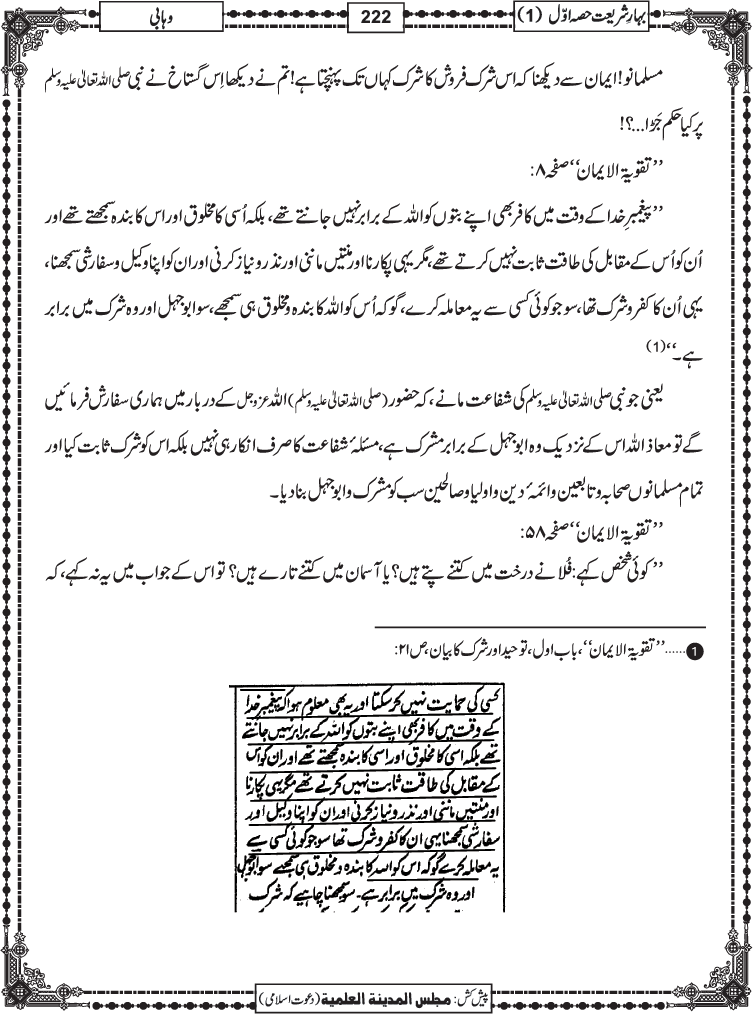 بہارِ شریعت حصہ اوّل (1)
222
وہابی
مسلمانو! ایمان سے دیکھنا کہ اس شرک فروش کا شرک کہاں تک پہنچتا ہے! تم نے دیکھا اِس گستاخ نے نبی صلی اللہ تعالیٰ علیہ وسلم
پر کیا حکم جَڑا...؟!
’’تقویۃ الایمان‘‘ صفحہ ۸:
’’پیغمبرِ خدا کے وقت میں کافر بھی اپنے بتوں کو اللہ کے برابر نہیں جانتے تھے، بلکہ اُسی کا مخلوق اور اس کا بندہ سمجھتے تھے اور
اُن کو اُس کے مقابل کی طاقت ثابت نہیں کرتے تھے، مگر یہی پکارنا اور منتیں ماننی اور نذر و نیاز کرنی اور ان کو اپنا وکیل و سفارشی سمجھنا،
یہی اُن کا کفر و شرک تھا، سو جو کوئی کسی سے یہ معاملہ کرے، گو کہ اُس کو اللہ کا بندہ و مخلوق ہی سمجھے، سو ابوجہل اور وہ شرک میں برابر
ہے۔‘‘ (1)
یعنی جو نبی صلی اللہ تعالیٰ علیہ وسلم کی شفاعت مانے، کہ حضور (صلی اللہ تعالیٰ علیہ وسلم) اللہ عزوجل کے دربار میں ہماری سفارش فرمائیں
گے تو معاذ اللہ اس کے نزدیک وہ ابوجہل کے برابر مشرک ہے، مسئلۂ شفاعت کا صرف انکار ہی نہیں بلکہ اس کو شرک ثابت کیا اور
تمام مسلمانوں صحابہ و تابعین وائمۂ دین و اولیا و صالحین سب کو مشرک و ابوجہل بنا دیا۔
’’تقویۃ الایمان‘‘ صفحہ ۵۸:
’’کوئی شخص کہے: فُلانے درخت میں کتنے پتے ہیں؟ یا آسمان میں کتنے تارے ہیں؟ تو اس کے جواب میں یہ نہ کہے، کہ
1 ......’’تقویۃ الایمان‘‘، باب اول، توحید اور شرک کا بیان، ص۲۱:
کسی کی حمایت نہیں کر سکتا اور یہ بھی معلوم ہوا کہ پیغمبر خدا
کے وقت میں کافر بھی اپنے بتوں کو اللہ کے برابر نہیں جانتے
تھے بلکہ اسی کا مخلوق اور اسی کا بندہ سمجھتے تھے اور ان کو اس
کے مقابل کی طاقت ثابت نہیں کرتے تھے مگر یہی پکارنا
اور منتیں ماننی اور نذر و نیاز کرنی اور ان کو اپنا وکیل اور
سفارشی سمجھنا یہی ان کا کفر و شرک تھا سو جو کوئی کسی سے
یہ معاملہ کرے گو کہ اس کو اللہ کا بندہ و مخلوق ہی سمجھے سو ابوجہل
اور وہ شرک میں برابر ہے۔ سو سمجھنا چاہیے کہ شرک
پیش کش: مجلس المدینۃ العلمیۃ (دعوت اسلامی)